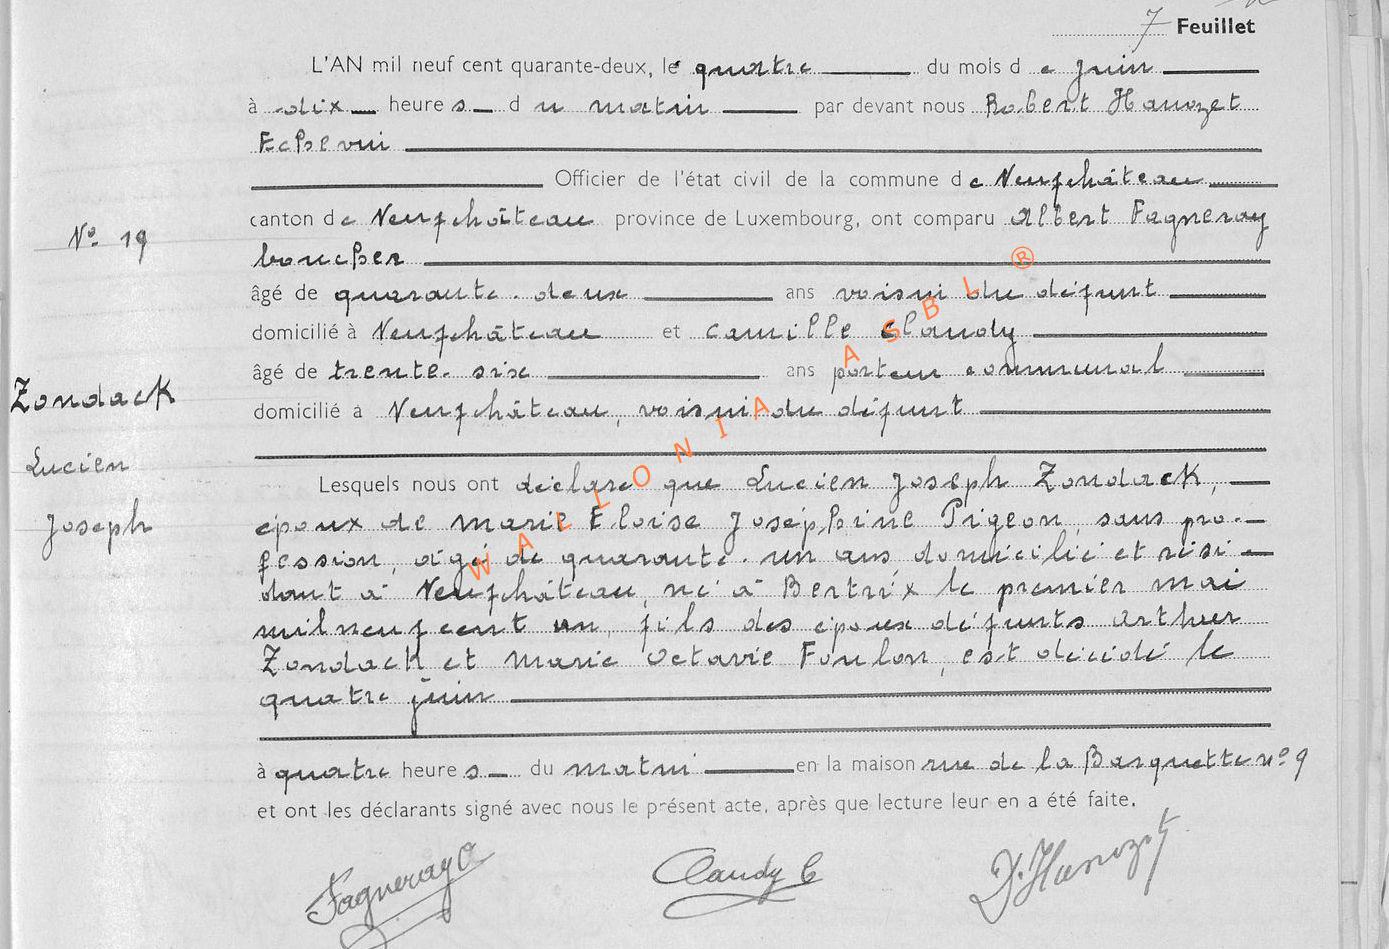 7 Feuillet
L'AN mil neuf cent quarante-deux, le quatre du mois de juin
à dix heures du matin par devant nous Robert Hanozet
Echevin
Officier de l'état civil de la commune de Neufchâteau
canton de Neufchâteau province de Luxembourg, ont comparu Albert Fagneray
N° 19
boucher
âgé de quarante-deux ans voisin du défunt
domicilié à Neufchâteau et Camille Claudy
âgé de trente-six ans porteur communal
Zondack
domicilié à Neufchâteau, voisin du défunt
Lucien
Lesquels nous ont déclaré que Lucien Joseph Zondack,
Joseph
époux de Marie Eloïse Joséphine Pigeon, sans pro-
fession, âgé de quarante-un ans, domicilié et rési-
dant à Neufchâteau, né à Bertrix le premier mai
mil neuf cent un, fils des époux défunts Arthur
Zondack et Marie Octavie Foulon, est décédé le
quatre juin
à quatre heures du matin en la maison rue de la Basquette n° 9
et ont les déclarants signé avec nous le présent acte, après que lecture leur en a été faite.
Fagneray A Claudy C Hanozet
WALLONIA ASBL ®